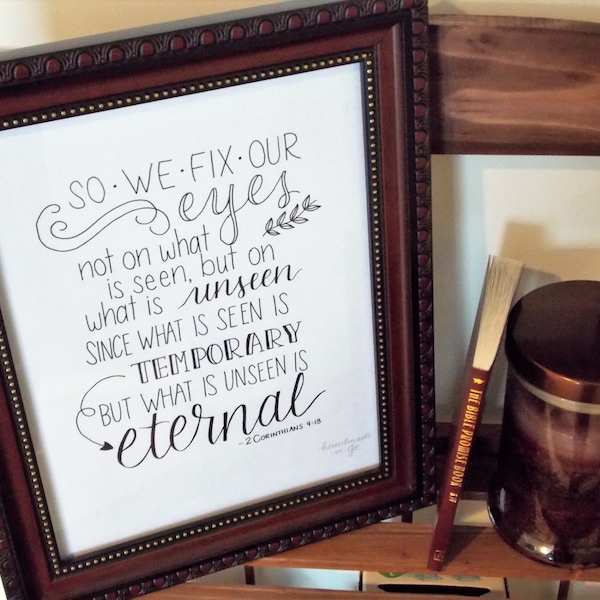 SO · WE · FIX · OUR
eyes
not on what
is seen, but on
what is unseen
SINCE WHAT IS SEEN IS
TEMPORARY
BUT WHAT IS UNSEEN IS
eternal
- 2 CORINTHIANS 4:18
THE BIBLE PROMISE BOOK